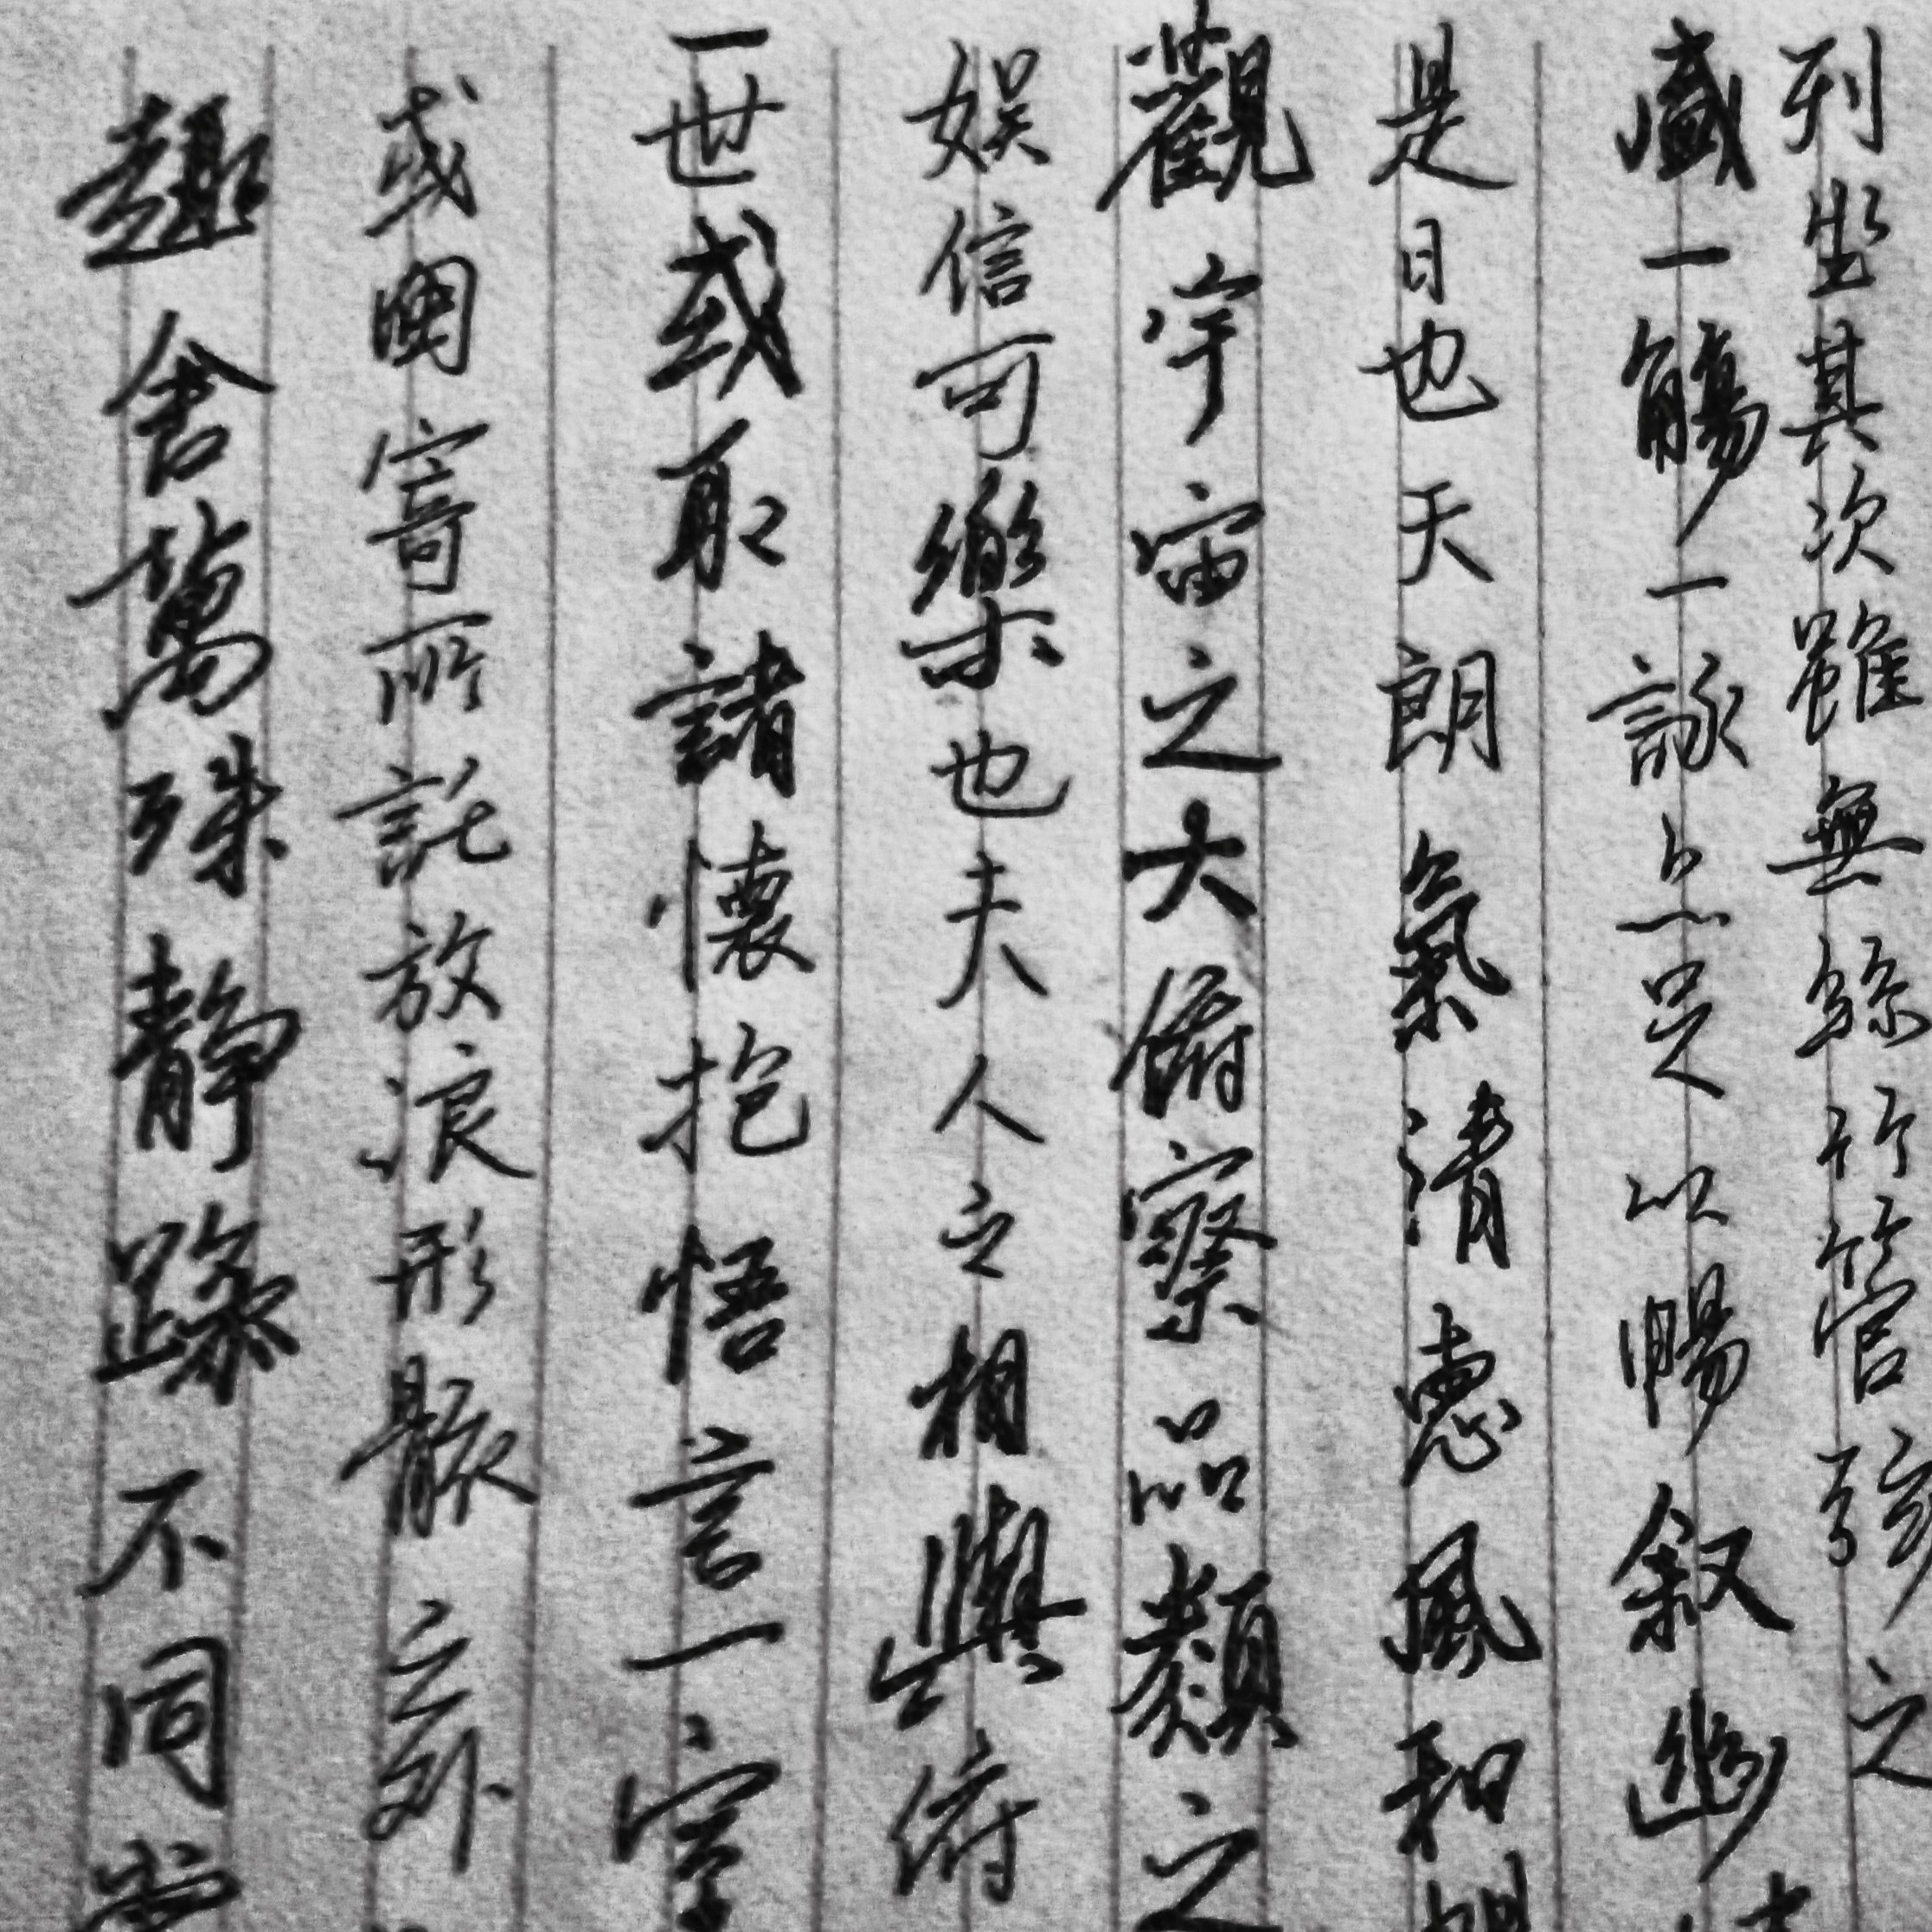 列坐其次雖無絲竹管弦之
盛一觴一詠亦足以暢叙幽
是日也天朗氣清惠風和
觀宇宙之大俯察品類之
娱信可樂也夫人之相與俯
一世或取諸懷抱悟言一室
或因寄所託放浪形骸之外
趣舍萬殊静躁不同當